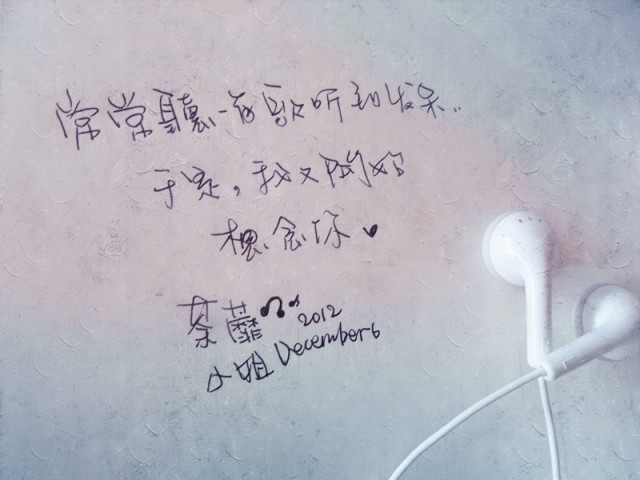 常常聽一首歌听到发呆..
于是,我又開始
想念你
荼蘼
2012
小姐 December 6